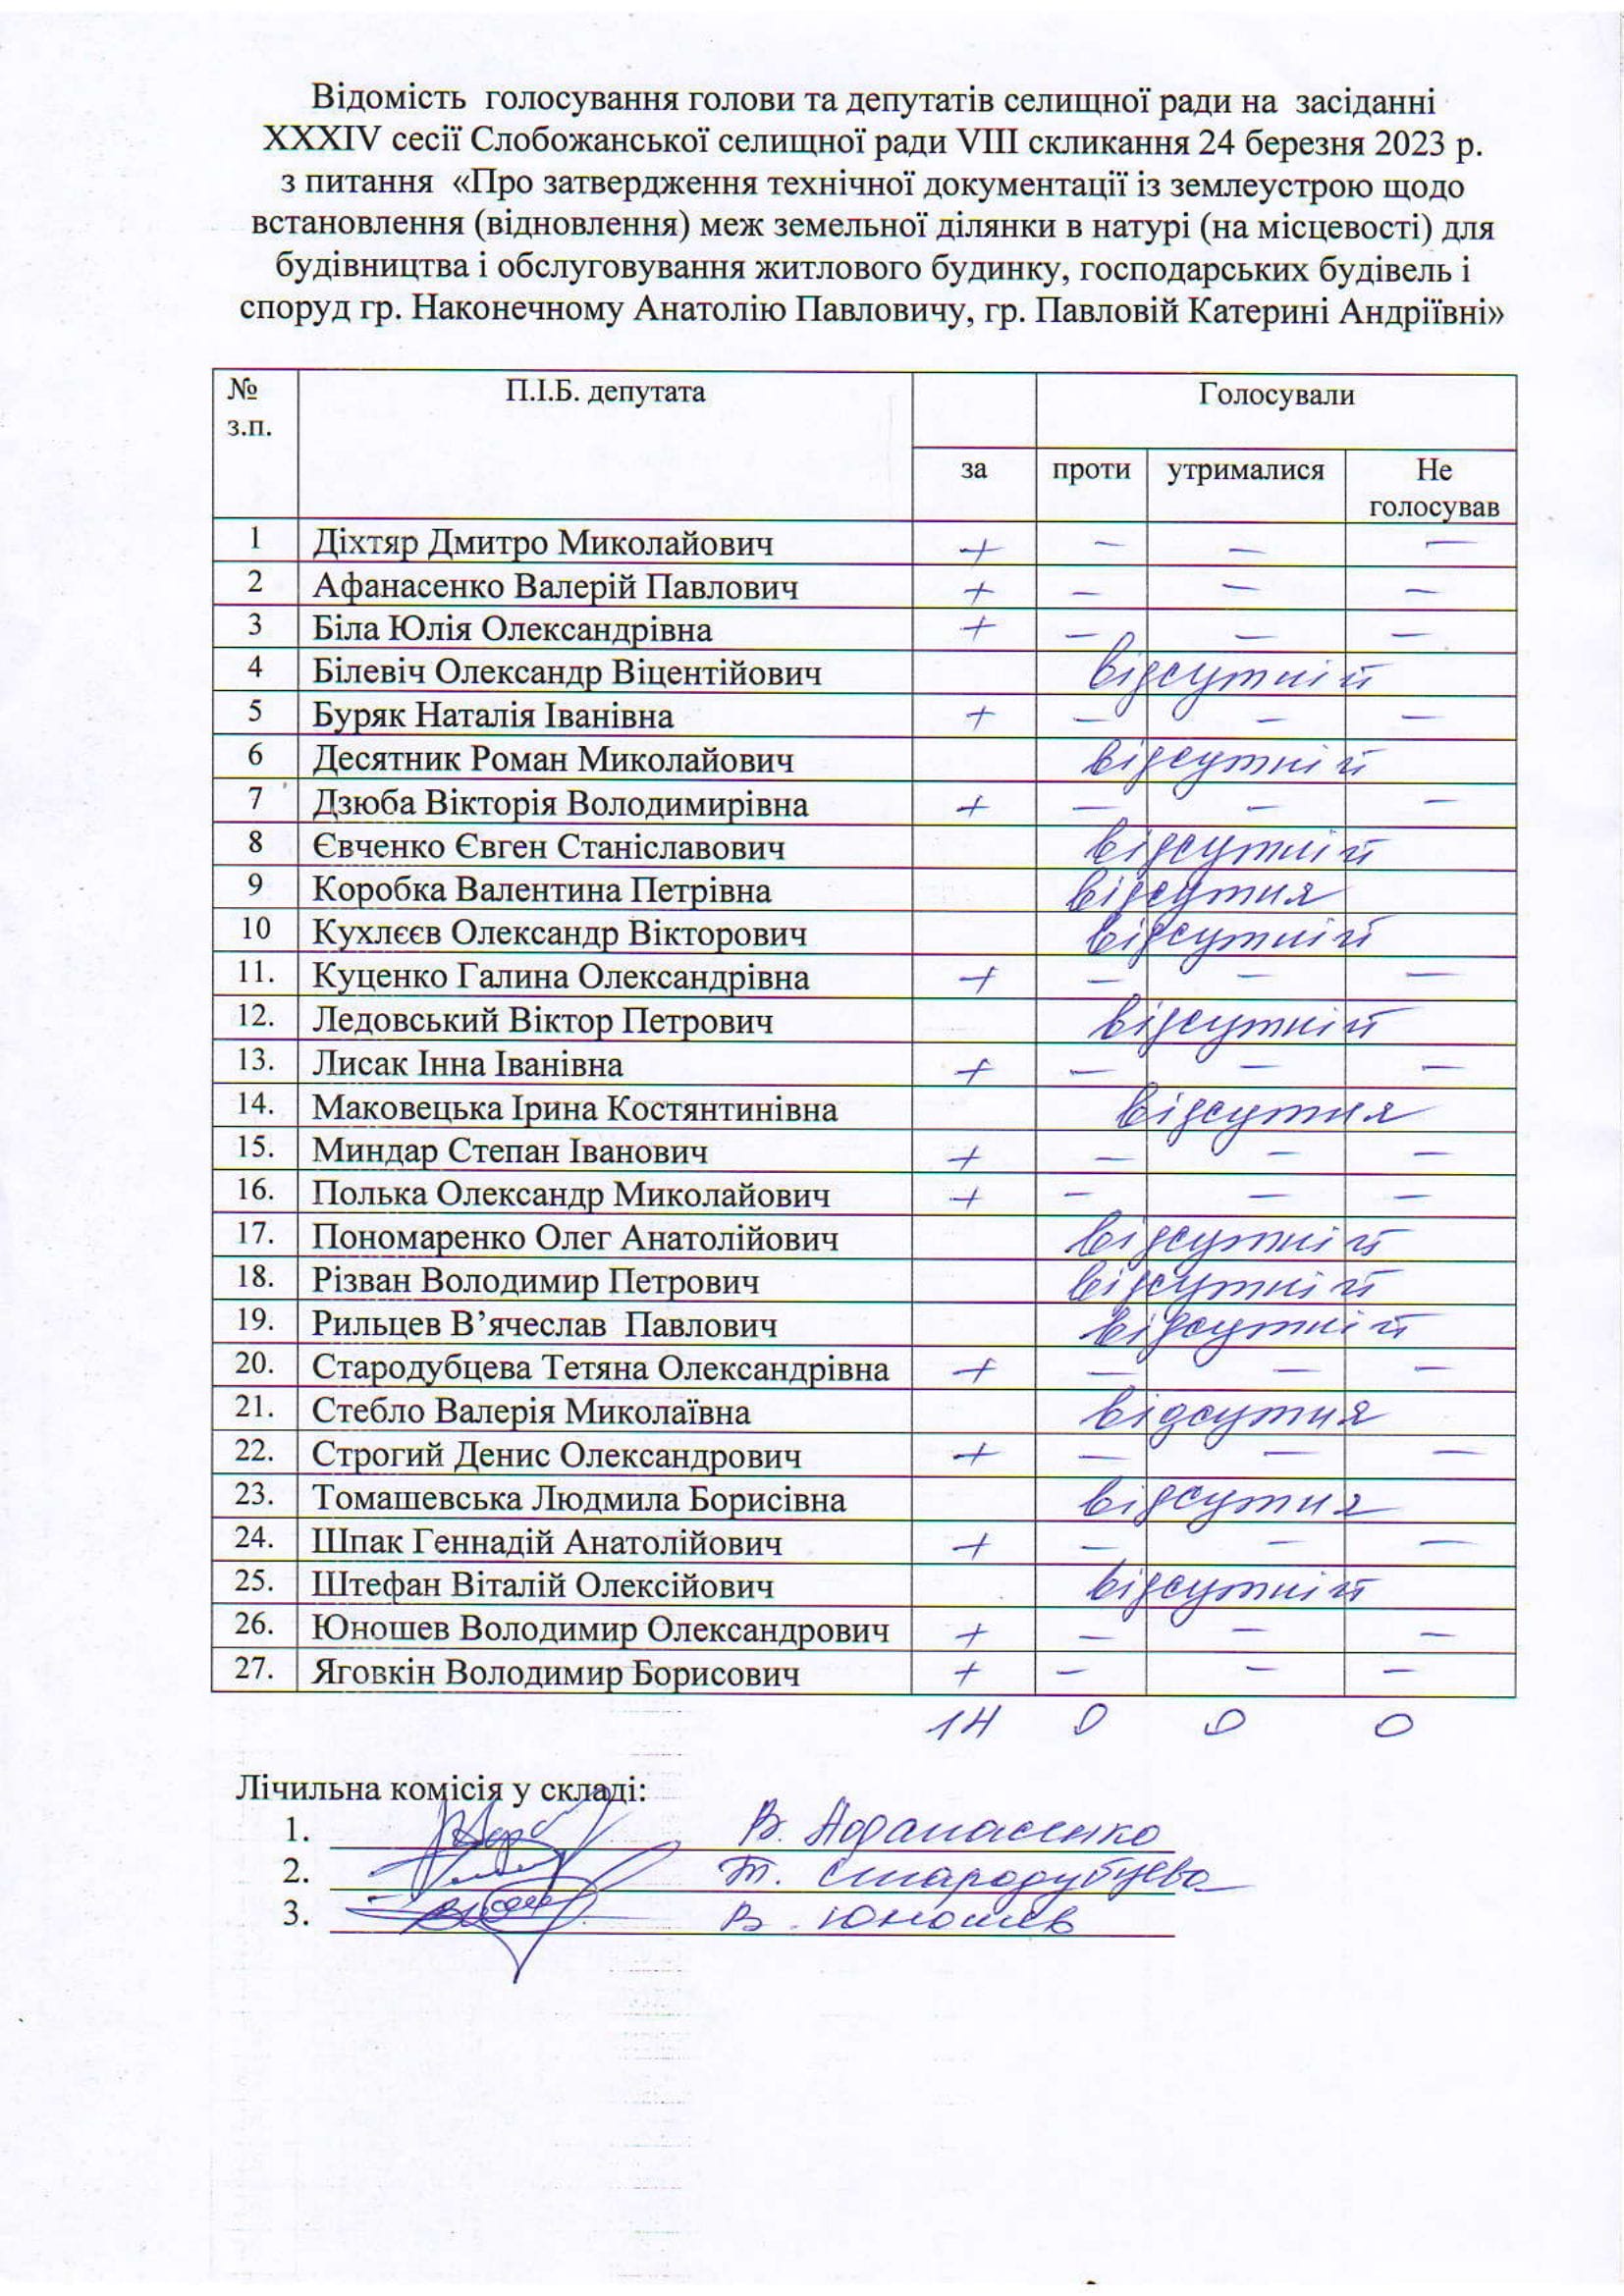 Відомість голосування голови та депутатів селищної ради на засіданні
XXXIV сесії Слобожанської селищної ради VIII скликання 24 березня 2023 р.
з питання «Про затвердження технічної документації із землеустрою щодо
встановлення (відновлення) меж земельної ділянки в натурі (на місцевості) для
будівництва і обслуговування житлового будинку, господарських будівель і
споруд гр. Наконечному Анатолію Павловичу, гр. Павловій Катерині Андріївні»
№ П.І.Б. депутата Голосували
з.п.
за проти утрималися Не
голосував
1 Діхтяр Дмитро Миколайович + – – –
2 Афанасенко Валерій Павлович + – – –
3 Біла Юлія Олександрівна + – – –
4 Білевіч Олександр Віцентійович відсутній
5 Буряк Наталія Іванівна + – – –
6 Десятник Роман Миколайович відсутній
7 Дзюба Вікторія Володимирівна + – – –
8 Євченко Євген Станіславович відсутній
9 Коробка Валентина Петрівна відсутня
10 Кухлєєв Олександр Вікторович відсутній
11. Куценко Галина Олександрівна + – – –
12. Ледовський Віктор Петрович відсутній
13. Лисак Інна Іванівна + – – –
14. Маковецька Ірина Костянтинівна відсутня
15. Миндар Степан Іванович + – – –
16. Полька Олександр Миколайович + – – –
17. Пономаренко Олег Анатолійович відсутній
18. Різван Володимир Петрович відсутній
19. Рильцев В’ячеслав Павлович відсутній
20. Стародубцева Тетяна Олександрівна + – – –
21. Стебло Валерія Миколаївна відсутня
22. Строгий Денис Олександрович + – – –
23. Томашевська Людмила Борисівна відсутня
24. Шпак Геннадій Анатолійович + – – –
25. Штефан Віталій Олексійович відсутній
26. Юношев Володимир Олександрович + – – –
27. Яговкін Володимир Борисович + – – –
14 0 0 0
Лічильна комісія у складі:
1. В. Афанасенко
2. Т. Стародубцева
3. В. Юношев